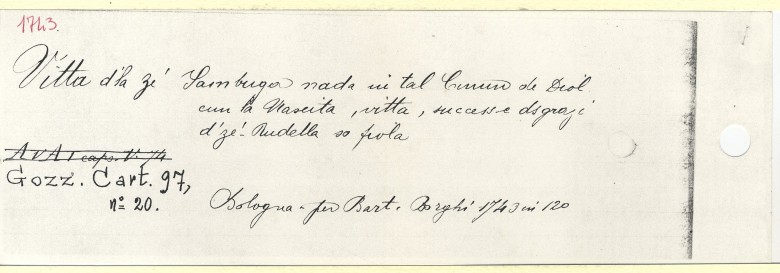 1743.
Vitta d'la zé Sambuga nada in tal Cmun de Diol
cun la Nascita, vitta, success e dsgrazi
d'zé Rudella so fiola
A V A 1 caps. V. 74
Gozz. Cart. 97,
nº 20.
Bologna - per Bart. Borghi 1743 in 120